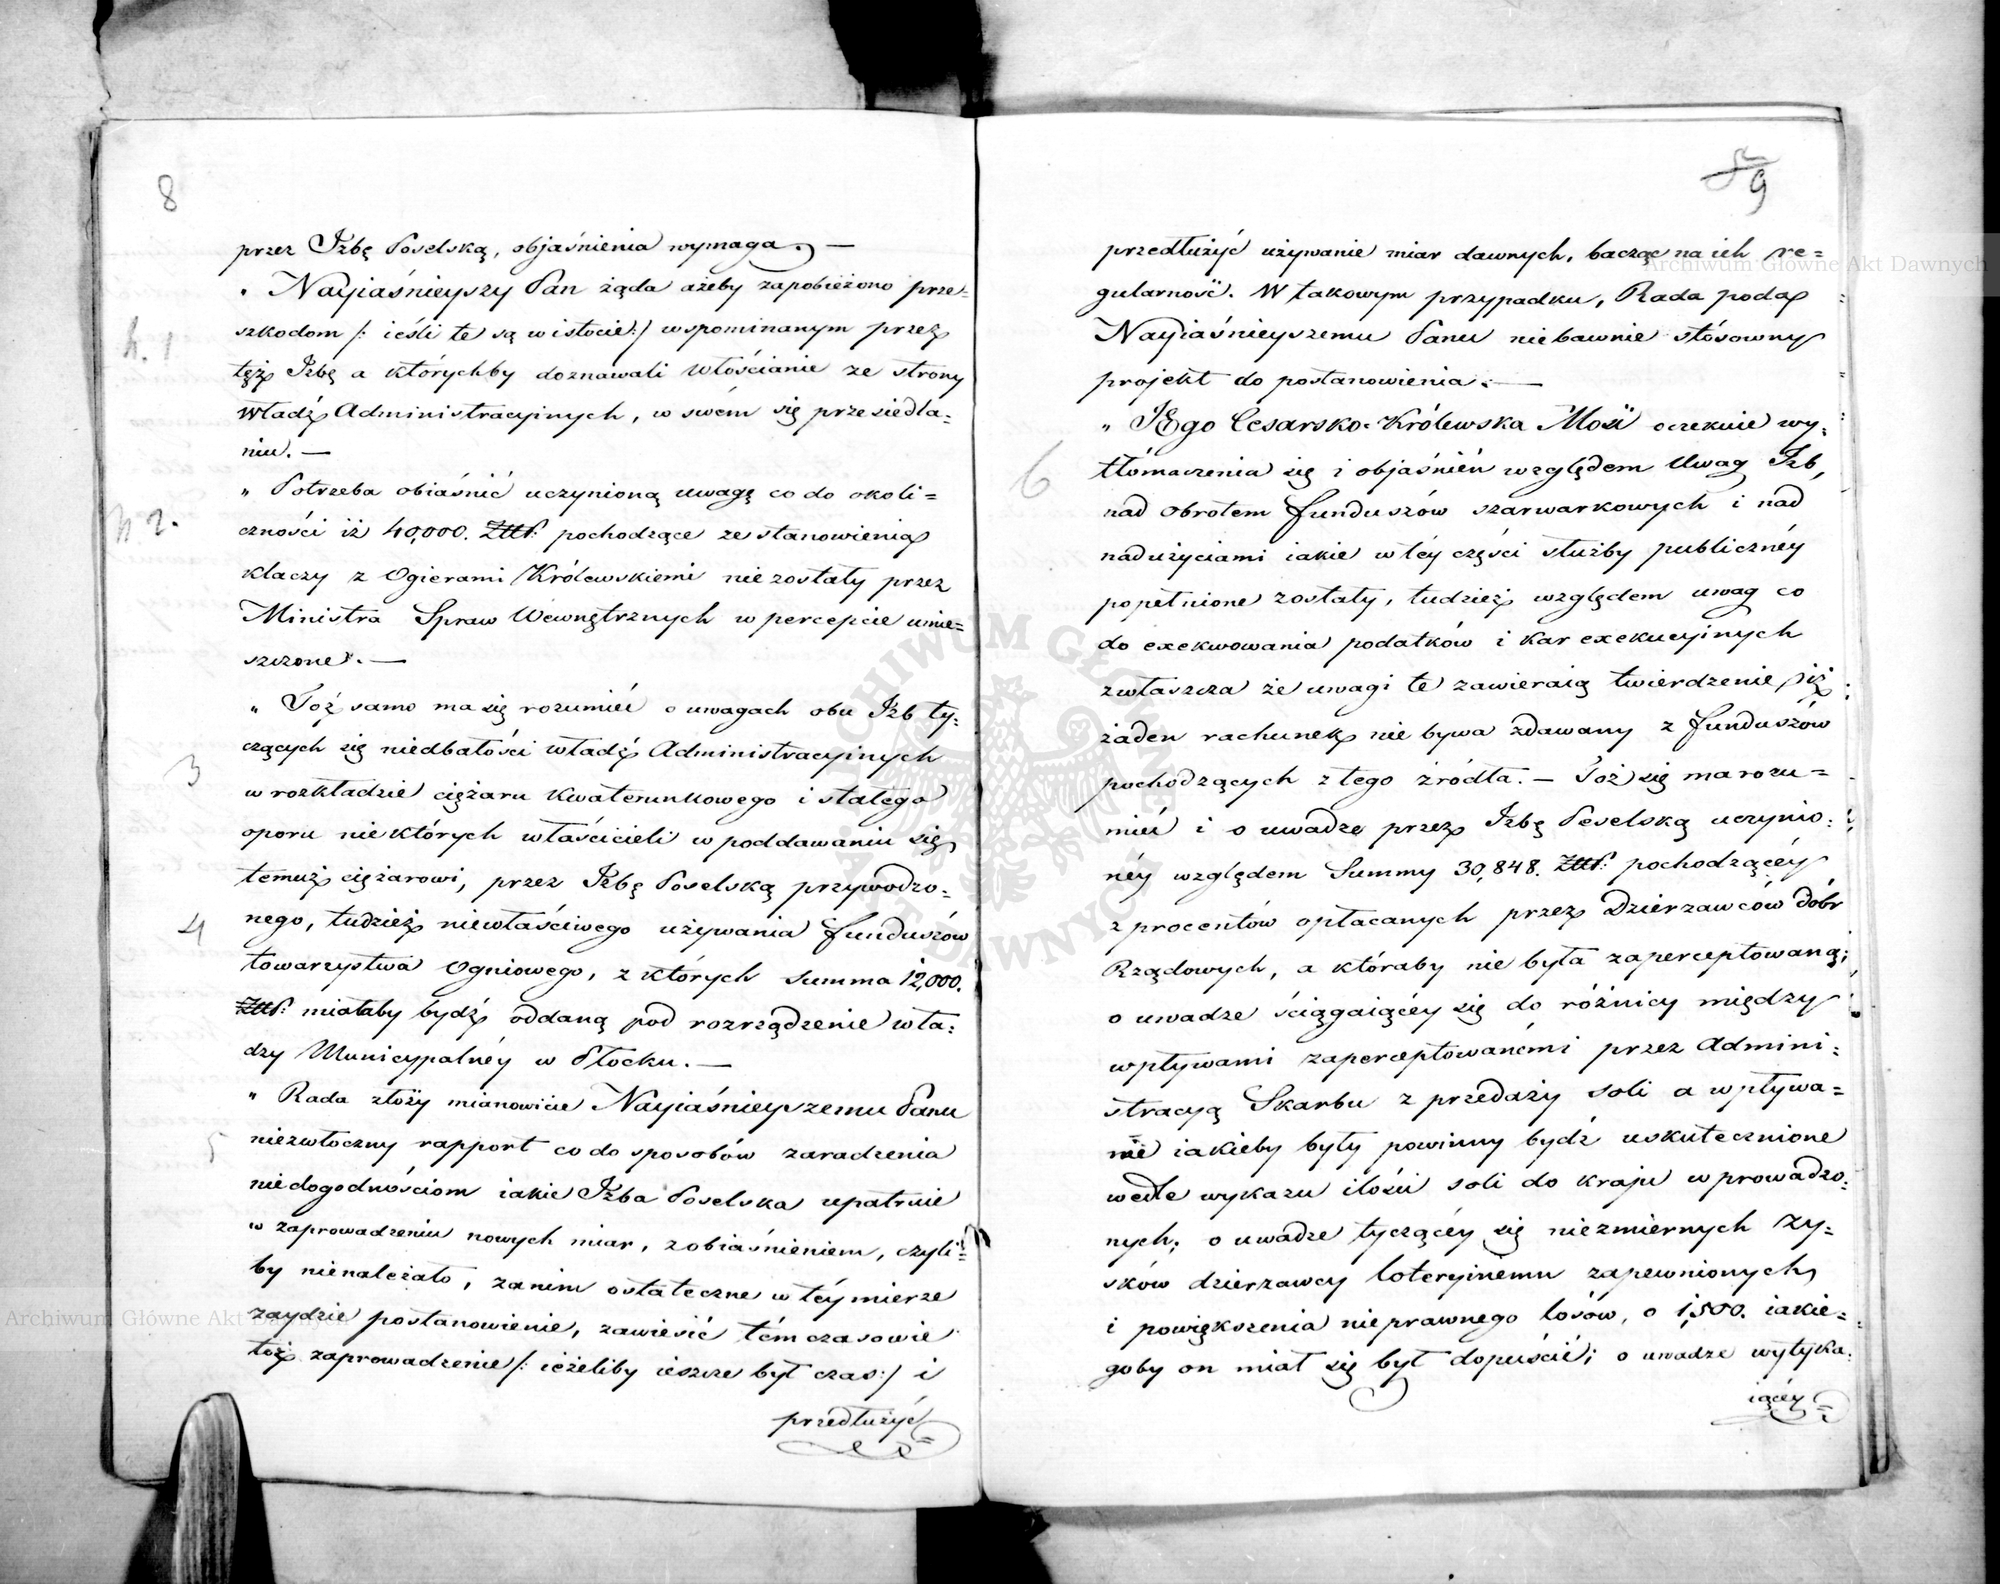 8
przez Izbę Poselską, objaśnienia wymaga. —
„ Nayiaśnieyszy Pan żąda ażeby zapobieżono prze=
szkodom /: ieśli te są w istocie :/ wspominanym przez
N. 1
tęż Izbę a którychby doznawali Włościanie ze strony
Władz Administracyinych, w swém się przesiedla=
niu. —
„ Potrzeba obiaśnić uczynioną uwagę co do okoli=
N 2.
czności iż 40,000. Złłp: pochodzące ze stanowienia
klaczy z Ogierami Królewskiemi nie zostały przez
Ministra Spraw Wewnętrznych w percepcie umie=
szczone. —
„ Toż samo ma się rozumieć o uwagach obu Izb ty=
czących się niedbałości władz Administracyinych
3
w rozkładzie ciężaru Kwaterunkowego i stałego
oporu niektórych właścicieli w poddawaniu się
temuż ciężarowi, przez Izbę Poselską przywodzo=
4
nego, tudzież niewłaściwego używania funduszów
towarzystwa Ogniowego, z których summa 12,000.
Złłp: miałaby bydź oddaną pod rozrządzenie wła=
dzy Municypalnéy w Płocku. —
„ Rada złoży mianowicie Nayiaśnieyszemu Panu
5
niezwłoczny rapport co do sposobów zaradzenia
niedogodnościom iakie Izba Poselska upatruie
w zaprowadzeniu nowych miar, z obiaśnieniem, czyli=
by nienależało, zanim ostateczne w téy mierze
zaydzie postanowienie, zawiesić tém czasowie
toż zaprowadzenie /: ieżeliby ieszcze był czas :/ i
przedłużyć
8 9
przedłużyć używanie miar dawnych, bacząc na ich re=
gularność. W takowym przypadku, Rada poda
Nayiaśnieyszemu Panu niebawnie stósowny
projekt do postanowienia. —
„ JEgo Cesarsko-Królewska Mość oczekuie wy=
6
tłómaczenia się i objaśnień względem Uwag Izb,
nad obrotem funduszów szarwarkowych i nad
nadużyciami iakie w téy części służby publicznéy
popełnione zostały, tudzież względem uwag co
do exekwowania podatków i kar exekucyinych
zwłaszcza że uwagi te zawieraią twierdzenie, iż
żaden rachunek nie bywa zdawany z funduszów
pochodzących z tego źródła. — Toż się ma rozu=
mieć i o uwadze przez Izbę Poselską uczynio=
néy względem Summy 30,848. Złłp: pochodzącéy
z procentów opłacanych przez Dzierzawców dóbr
Rządowych, a któraby nie była zaperceptowaną;
o uwadze ściągaiącéy się do różnicy między
wpływami zaperceptowanémi przez Admini=
stracyą Skarbu z przedaży soli a wpływa=
mi iakieby były powinny bydź uskutecznione
wedle wykazu ilości soli do kraju wprowadzo=
nych; o uwadze tyczącéy się niezmiernych zy=
sków dzierzawcy loteryinemu zapewnionych
i powiększenia nieprawnego losów, o 1,500. iakie=
goby on miał się był dopuścić; o uwadze wytyka=
iącéy
Archiwum Główne Akt Dawnych
Archiwum Główne Akt Dawnych
ARCHIWUM GŁÓWNE AKT DAWNYCH